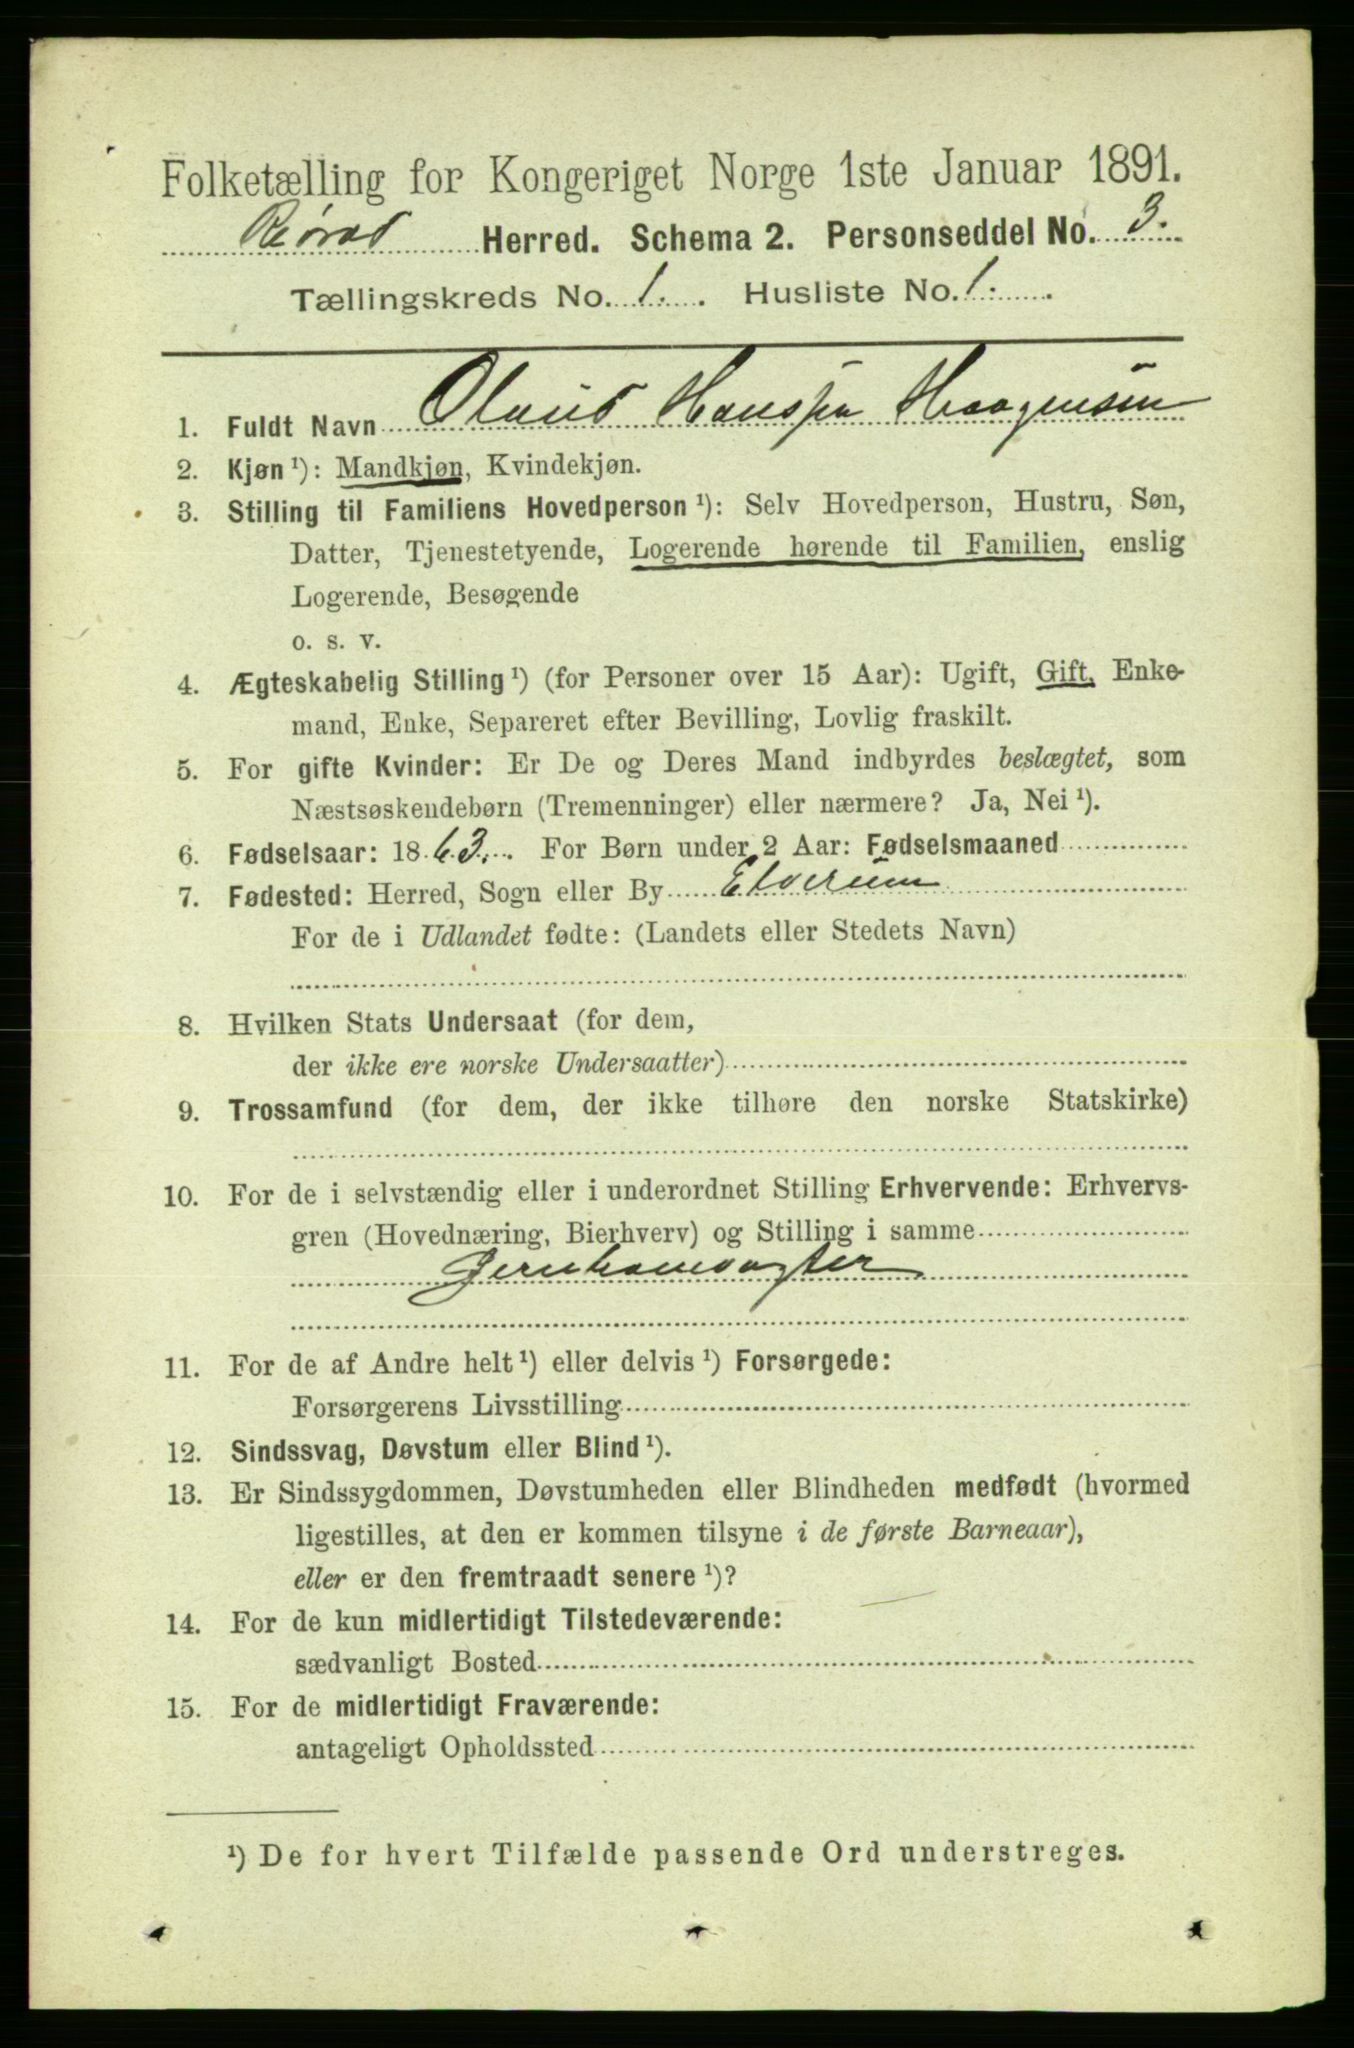 Folketælling for Kongeriget Norge 1ste Januar 1891.
Røros Herred. Schema 2. Personseddel No. 3.
Tællingskreds No. 1. Husliste No. 1.
1. Fuldt Navn Olaus Haagensen
2. Kjøn ¹): Mandkjøn, Kvindekjøn.
3. Stilling til Familiens Hovedperson ¹): Selv Hovedperson, Hustru, Søn,
Datter, Tjenestetyende, Logerende hørende til Familien, enslig
Logerende, Besøgende
o. s. v.
4. Ægteskabelig Stilling ¹) (for Personer over 15 Aar): Ugift, Gift, Enke-
mand, Enke, Separeret efter Bevilling, Lovlig fraskilt.
5. For gifte Kvinder: Er De og Deres Mand indbyrdes beslægtet, som
Næstsøskendebørn (Tremenninger) eller nærmere? Ja, Nei ¹).
6. Fødselsaar: 1863. For Børn under 2 Aar: Fødselsmaaned
7. Fødested: Herred, Sogn eller By Elverum
For de i Udlandet fødte: (Landets eller Stedets Navn)
8. Hvilken Stats Undersaat (for dem,
der ikke ere norske Undersaatter)
9. Trossamfund (for dem, der ikke tilhøre den norske Statskirke)
10. For de i selvstændig eller i underordnet Stilling Erhvervende: Erhvervs-
gren (Hovednæring, Bierhverv) og Stilling i samme
Jernbanevogter
11. For de af Andre helt ¹) eller delvis ¹) Forsørgede:
Forsørgerens Livsstilling
12. Sindssvag, Døvstum eller Blind ¹).
13. Er Sindssygdommen, Døvstumheden eller Blindheden medfødt (hvormed
ligestilles, at den er kommen tilsyne i de første Barneaar),
eller er den fremtraadt senere ¹)?
14. For de kun midlertidigt Tilstedeværende:
sædvanligt Bosted
15. For de midlertidigt Fraværende:
antageligt Opholdssted
¹) De for hvert Tilfælde passende Ord understreges.